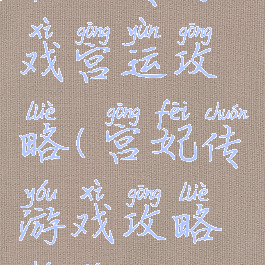 xì gōng yùn gōng
戏宫运攻
lüè gōng fēi chuán
略(宫妃传
yóu xì gōng lüè
游戏攻略